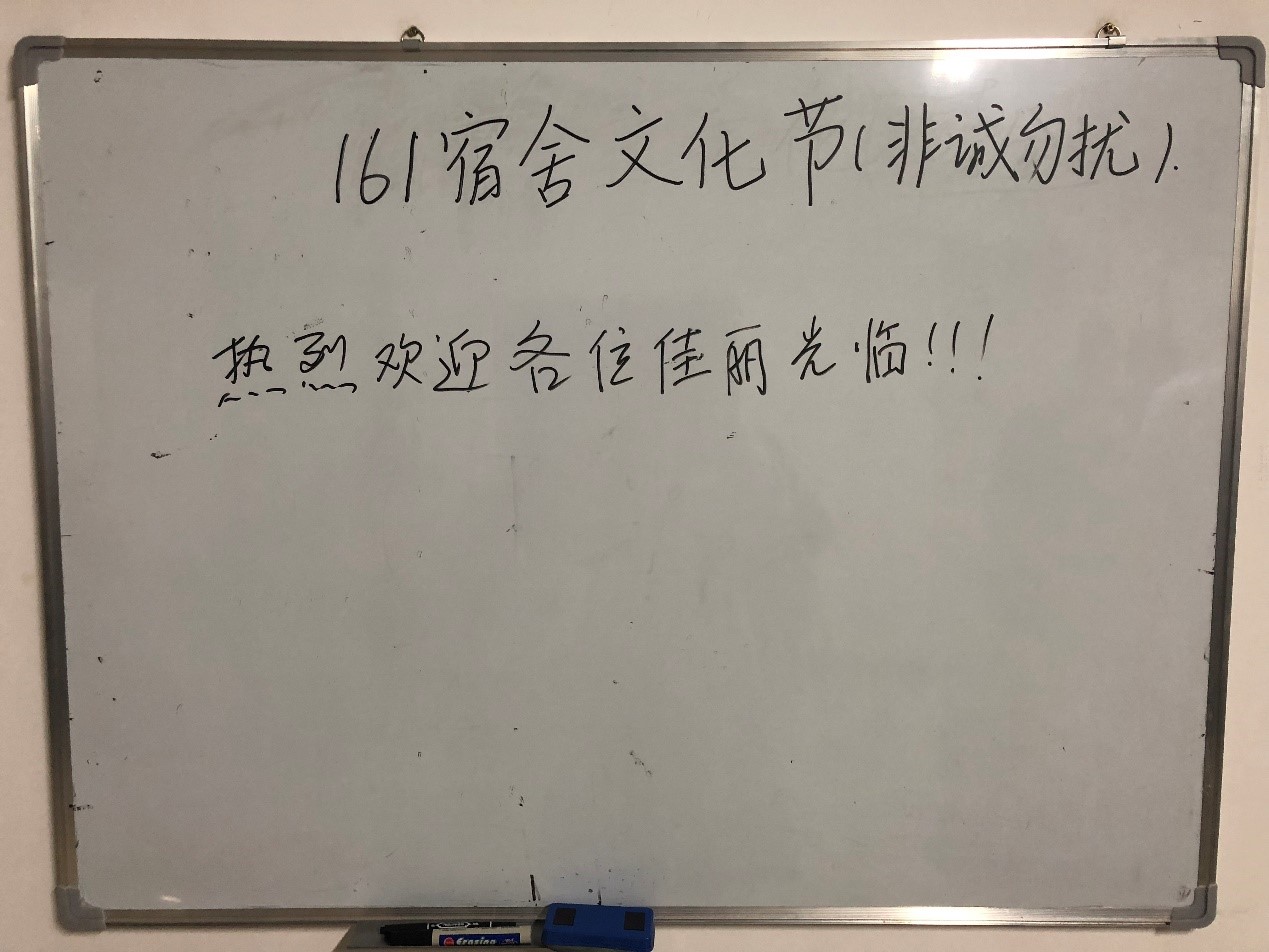 161宿舍文化节(非诚勿扰).
热烈欢迎各位佳丽光临!!!